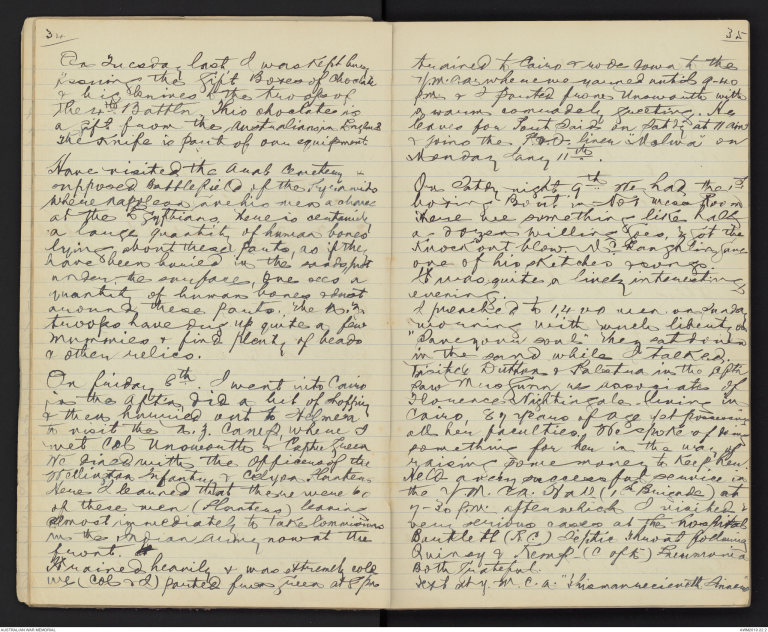 34
On Tuesday last I was kept busy
issuing the Gift Boxes of Chocolate
& big knives to the troops of
the 4th Battln. This chocolate is
a gift from the Australians in England
The knife is part of our equipment
Have visited the Arab Cemetery &
supposed Battlefield of the Pyramids
where Napoleon gave his men a chance
at the Egyptians. There is certainly
a large quantity of human bones
lying about these parts, as if they
have been buried in the sand, just
under the surface, one sees a
quantity of human bones & dust
around these parts. The N.Z.
troops have dug up quite a few
mummies & find plenty of beads
& other relics.
On friday 8th. I went into Cairo
in the aftn, did a bit of shopping
& then hurried out to Helmera
to visit the N.Z. Camp where I
met Col Unsworth & Captn Green
We dined with the Officers of the
Wellington Infantry & Ceylon Planters.
Here I learned that there were 60
of these men (Planters) leaving
almost immediately to take Commissions
in the Indian Army now at the
front.
It rained heavily & was extremely cold
we (Col & I) parted from Green at 8 pm
35
trained to Cairo & rode down to the
YMCA. where we yarned until 9-40
pm & I parted from Unsworth with
a warm comradely greeting. He
leaves for Port Said on Satdy at 11 am
& joins the P&O. liner "Malwa" on
Monday Jany 11th.
On Satdy night 9th We had the 1st
boxing Bout in No 1 mess Room
there were something like half
a dozen willing goes, & got the
knock out blow. Mr McLaughlin gave
one of his sketches & songs
It was quite a lively interesting
evening.
I preached to 1,400 men on Sunday
morning with much liberty, on
"Save your soul" they sat down
in the sand while I talked.
Visited Dutton & Palestra in the aftn
saw Miss Gunn as associate of
Florence Nightingale living in
Cairo. 89 years of age yet possessing
all her faculties. We spoke of doing
something for her in the way of
raising some money to keep her.
Held a very successful service in
the Y.M.C.A. No 12 (1st Brigade) at
7-30 pm. after which I visited 2
very serious cases at the hospital
Bartlett (R.C) Septic throat following
Quinsy & Kemp (C of E) Pneumonia
Both grateful.
Text at Y.M.C.A. "This man receiveth Sinners"
AUSTRALIAN WAR MEMORIAL